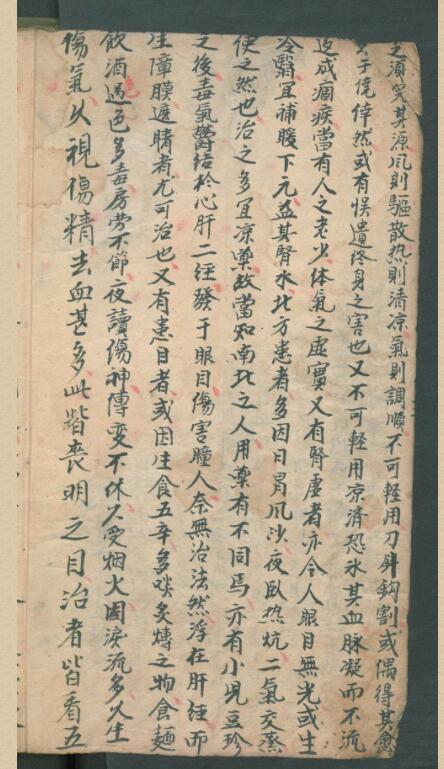 之須究其源风則驅散热則清凉氣則調順不可軽用刀針鈎割或偶得其愈
于倖倖然或有悞遺终身之害也又不可軽用凉濟恐氷其血脉凝而不流
皮成痼疾當有人之老少体氣之虚實又有腎虚者亦令人眼目無光或生
冷翳宜補暖下元益其腎水北方患者多因日冐风沙夜臥热炕二氣交蒸
使之然也治之多宜凉藥故當知南北之人用藥有不同焉亦有小児豆疹
之後毒氣欝结於心肝二经發于眼目傷害瞳人奈無治法然浮在肝经而
生障膜遮睛者尤可治也又有患目者或因生食五辛多啖炙煿之物食麵
飲酒過色多毒房劳不節夜讀傷神博変不休久受烟火因淚流多久生
傷氣久視傷精去血甚多此皆喪明之目治者皆看五